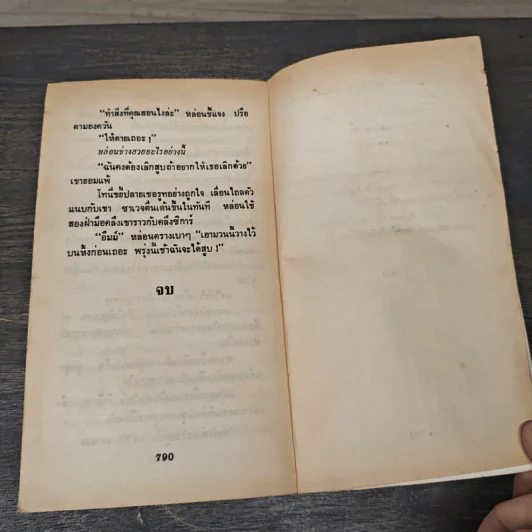 "ทำสิ่งที่คุณสอนไงล่ะ" หล่อนชี้แจง ปรือ
ตามองควัน
"ให้ตายเถอะ !"
หล่อนช่างสวยอะไรอย่างนี้
"ฉันคงต้องเลิกสูบถ้าอยากให้เธอเลิกด้วย"
เขายอมแพ้
โทนี่ขยี้ปลายเชอรูทอย่างถูกใจ เลื่อนไถลตัว
แนบกับเขา ซาเวจตื่นเต้นขึ้นในทันที หล่อนใช้
สองฝ่ามือคลึงเขาราวกับคลึงซิการ์
"อืมม์" หล่อนครางเบาๆ "เอามวนนี้วางไว้
บนหิ้งก่อนเถอะ พรุ่งนี้เช้าฉันจะได้สูบ !"
จบ
790